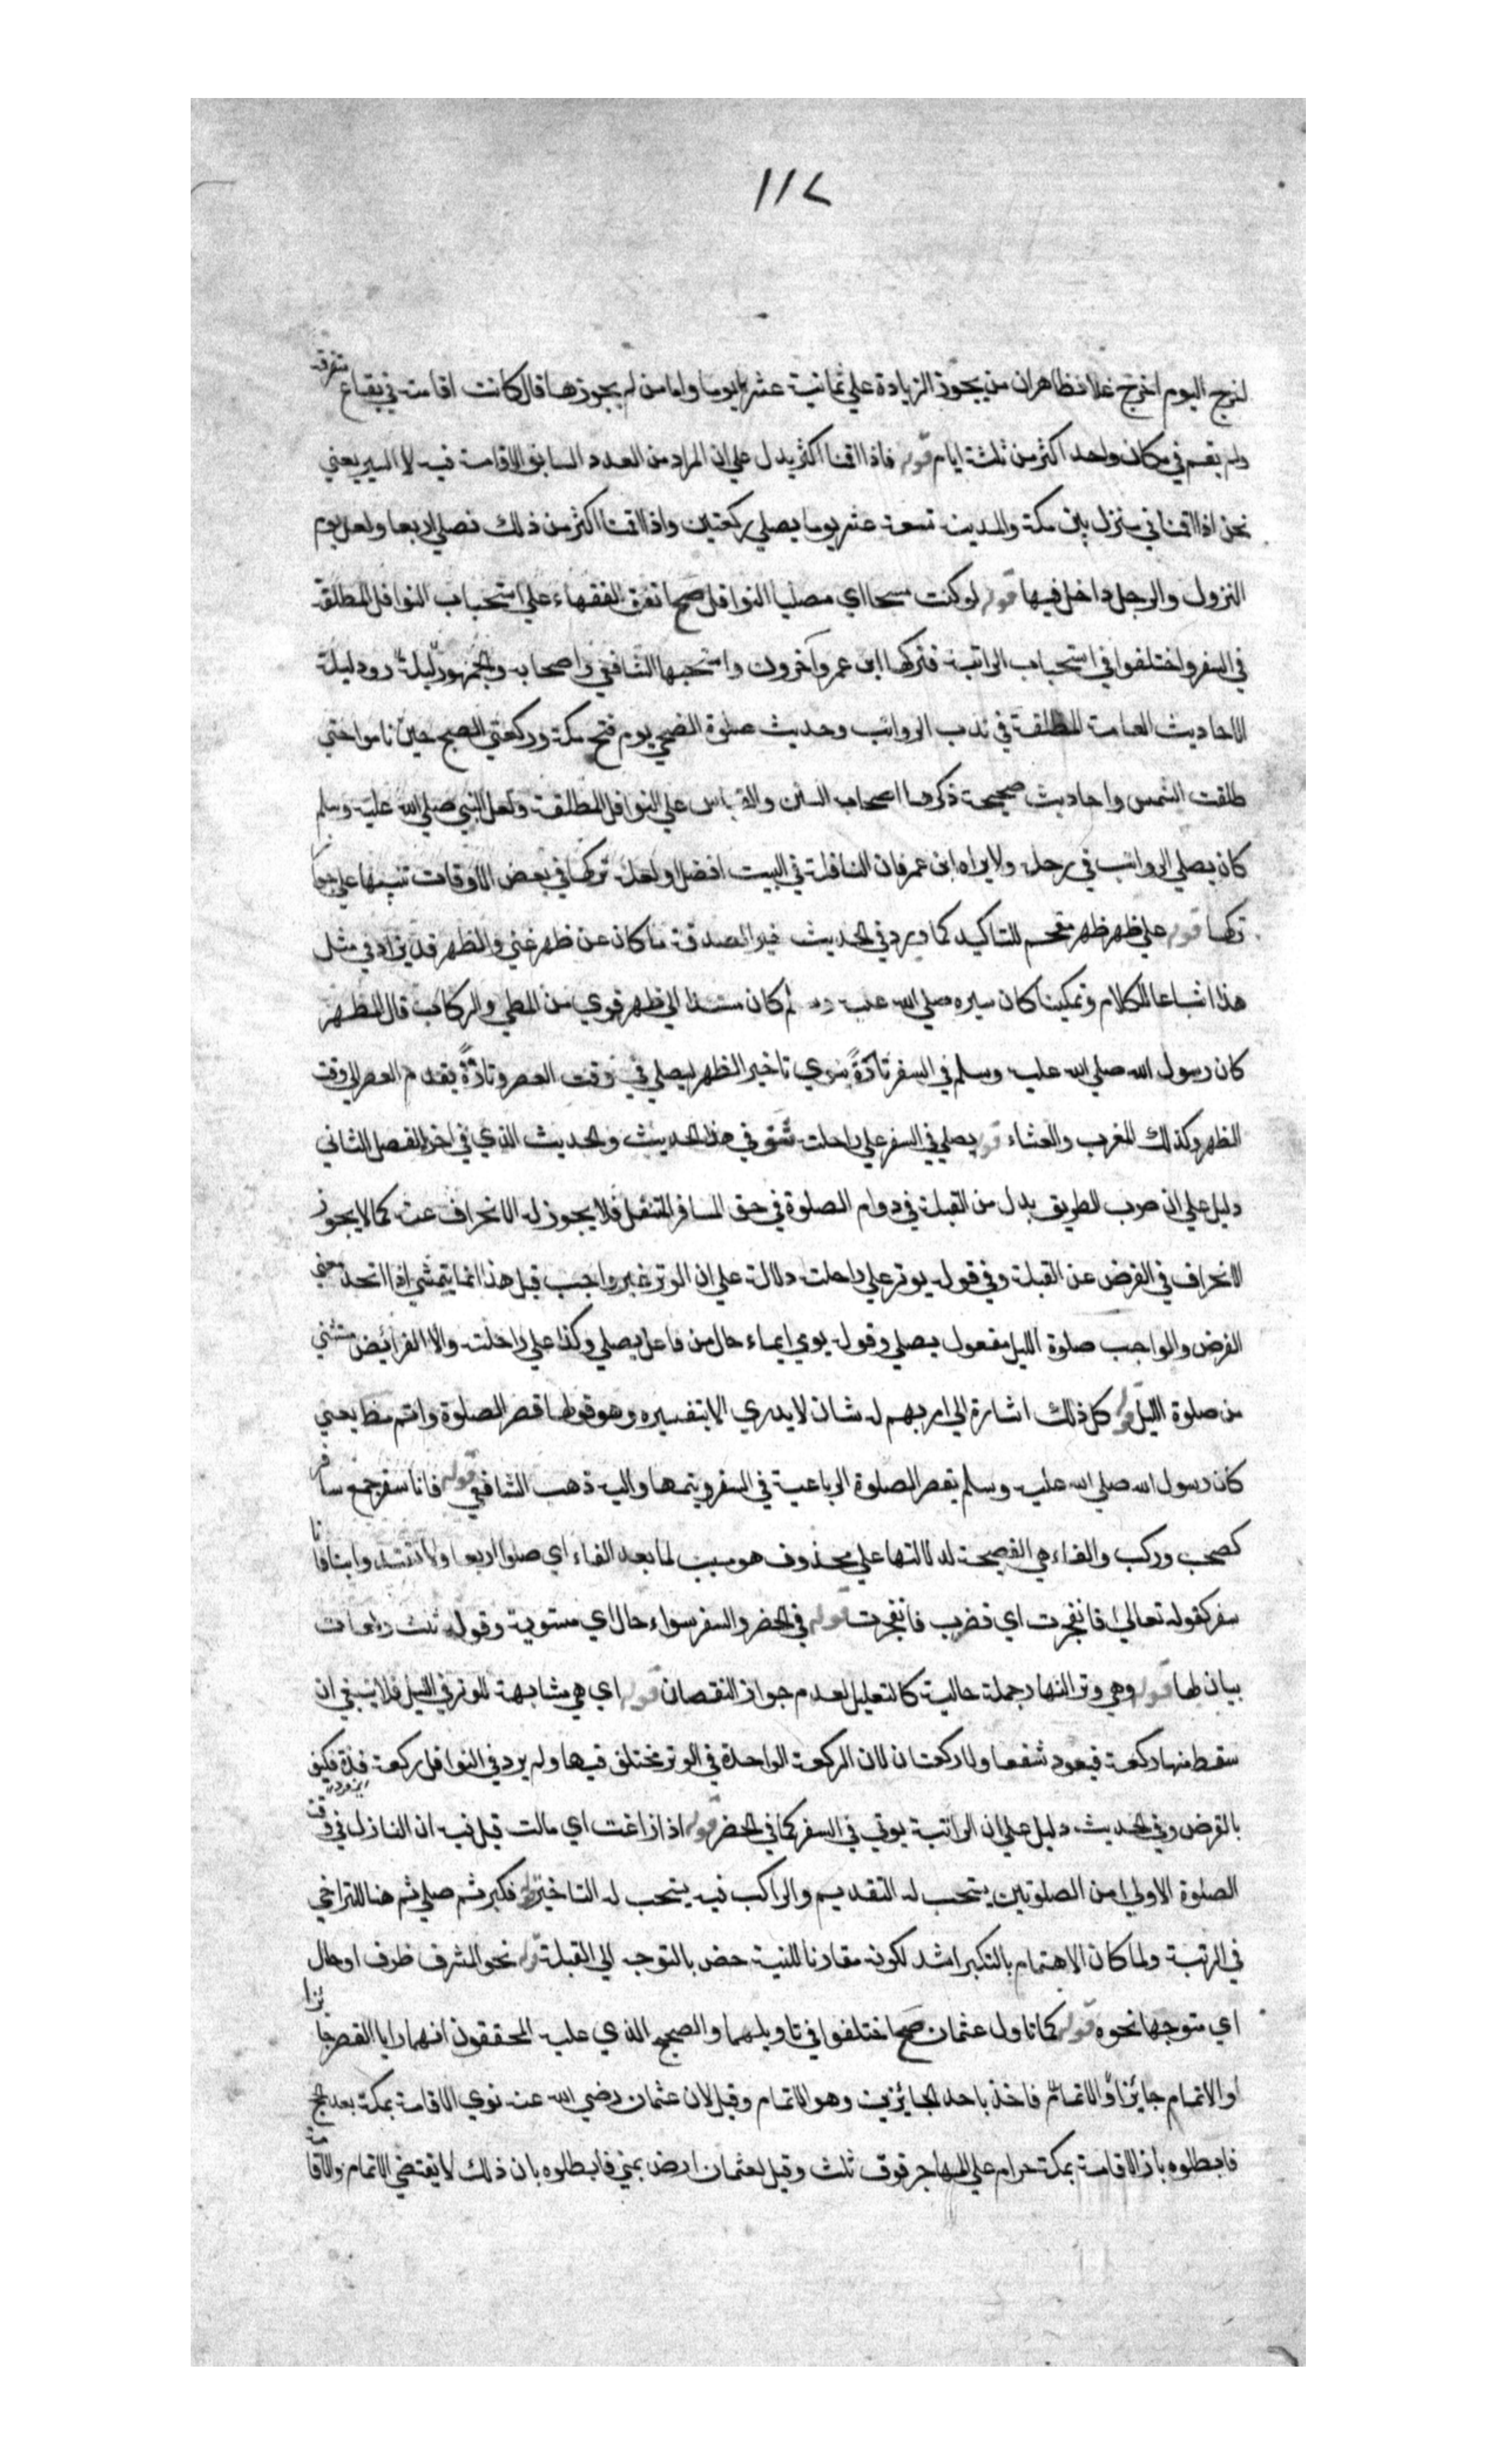 ١١٧
اخرج اليوم اخرج غدا فظاهران من يجوز الزيادة علي ثمانية عشر يوما واما من لم يجوزها قال كانت اقامته في بقاع متفرقة
ولم يقم في مكان واحد اكثر من ثلثة ايام قوله فاذا اقمنا اكثر يدل علي ان المراد من العدد السابق الاقامة فيه لا السير يعني
نحن اذا اقمنا في منزل بين مكة والمدينة تسعة عشر يوما يصلي ركعتين واذا اقمنا اكثر من ذلك نصلي اربعا ولعل يوم
النزول والرحل داخل فيها قوله لو كنت مسبحا اي مصليا النوافل مح اتفق الفقهاء علي استحباب النوافل المطلقة
في السفر واختلفوا في استحباب الراتبة فتركها ابن عمر وآخرون واستحبها الشافعي واصحابه والجمهور ودليله
الاحاديث العامة المطلقة في ندب الرواتب وحديث صلوة الضحي يوم فتح مكة وركعتي الصبح حين ناموا حتي
طلعت الشمس واحاديث صحيحة ذكرها اصحاب السنن والقياس علي النوافل المطلقة ولعل النبي صلي الله عليه وسلم
كان يصلي الرواتب في رحله ولا يراه ابن عمر فان النافلة في البيت افضل او لعله تركها في بعض الاوقات تنبيها علي جواز
تركها قوله علي ظهر ظهر مقحم للتاكيد كما ورد في الحديث خير الصدقة ما كان عن ظهر غني والظهر قد يزاد في مثل
هذا اشباعا للكلام وتمكينا كان سيره صلي الله عليه وسلم كان مستندا الي ظهر قوي من المطي والركاب قال المظهر
كان رسول الله صلي الله عليه وسلم في السفر تارةً ينوي تاخير الظهر ليصلي في وقت العصر وتارةً يقدم العصر الي وقت
الظهر وكذلك المغرب والعشاء قوله يصلي في السفر علي راحلته شق في هذا الحديث والحديث الذي في اخر الفصل الثاني
دليل علي ان صوب الطريق بدل من القبلة في دوام الصلوة في حق المسافر المتنفل فلا يجوز له الانحراف عنه كما لا يجوز
الانحراف في الفرض عن القبلة وفي قوله يوتر علي راحلته دلالة علي ان الوتر غير واجب قيل هذا انما يتمشي اذا اتحد معني
الفرض والواجب صلوة الليل مفعول يصلي وقوله يومي ايماء حال من فاعل يصلي وكذا علي راحلته والا الفرائض مستثني
من صلوة الليل قوله كل ذلك اشارة الي امر مبهم له شان لا يدري الا بتفسيره وهو قولها قصر الصلوة واتم مظ يعني
كان رسول الله صلي الله عليه وسلم يقصر الصلوة الرباعية في السفر ويتمها واليه ذهب الشافعي قوله فانا سفر جمع سافر
كصحب وركب والفاء هي الفصيحة لدلالتها علي محذوف هو سبب لما بعد الفاء اي صلوا اربعا ولا تقتدوا بنا فانا
سفر كقوله تعالي فانفجرت اي فضرب فانفجرت قوله في الحضر والسفر سواء حال اي مستوية وقوله ثلث ركعات
بيان لها قوله وهي وتر النهار جملة حالية كالتعليل لعدم جواز النقصان قوله اي هي مشابهة للوتر في الليل فلا ينبغي ان
سقط منها ركعة فيعود شفعا ولا ركعتان لان الركعة الواحدة في الوتر مختلف فيها ولم يرد في النوافل ركعة فذة فكيف
بالفرض وفي الحديث دليل علي ان الراتبة يوتي في السفر كما في الحضر قوله اذا زاغت اي مالت قيل فيه ان النازل في وقت
الصلوة الاولي من الصلوتين يستحب له التقديم والراكب فيه يستحب له التاخير قوله فكبر ثم صلي ثم هنا للتراخي
في الرتبة ولما كان الاهتمام بالتكبير اشد لكونه مقارنا للنية خص بالتوجه الي القبلة قوله نحو المشرق ظرف او حال
اي متوجها نحوه قوله كما تاول عثمان مح اختلفوا في تاويلهما والصحيح الذي عليه المحققون انهما رايا القصر جايزا
او الاتمام جايزا والاتمام فاخذ باحد الجائزين وهو الاتمام وقيل لان عثمان رضي الله عنه نوي الاقامة بمكة بعد الحج
فابطلوه بان الاقامة بمكة حرام علي المهاجر فوق ثلث وقيل لعثمان ارض بمني فابطلوه بان ذلك لا يقتضي الاتمام والاقامة